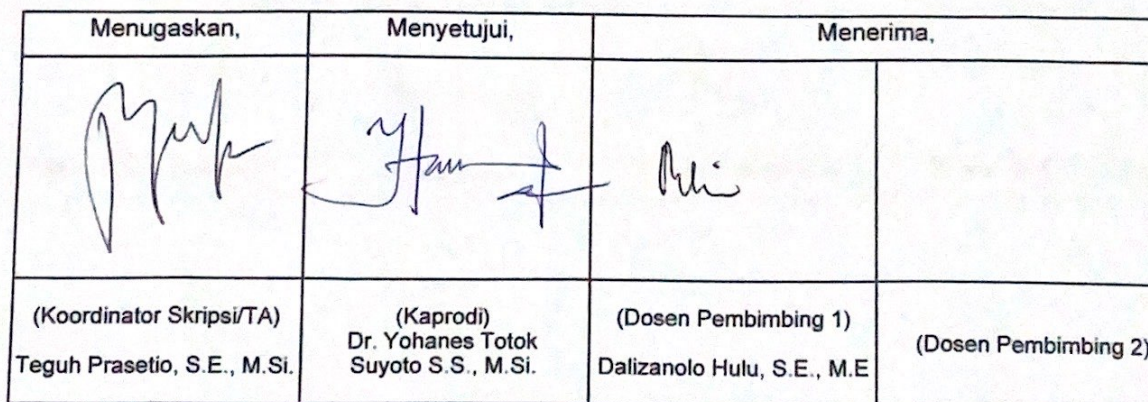 Menugaskan,
Menyetujui,
Menerima,
(Koordinator Skripsi/TA)
Teguh Prasetio, S.E., M.Si.
(Kaprodi)
Dr. Yohanes Totok
Suyoto S.S., M.Si.
(Dosen Pembimbing 1)
Dalizanolo Hulu, S.E., M.E
(Dosen Pembimbing 2)